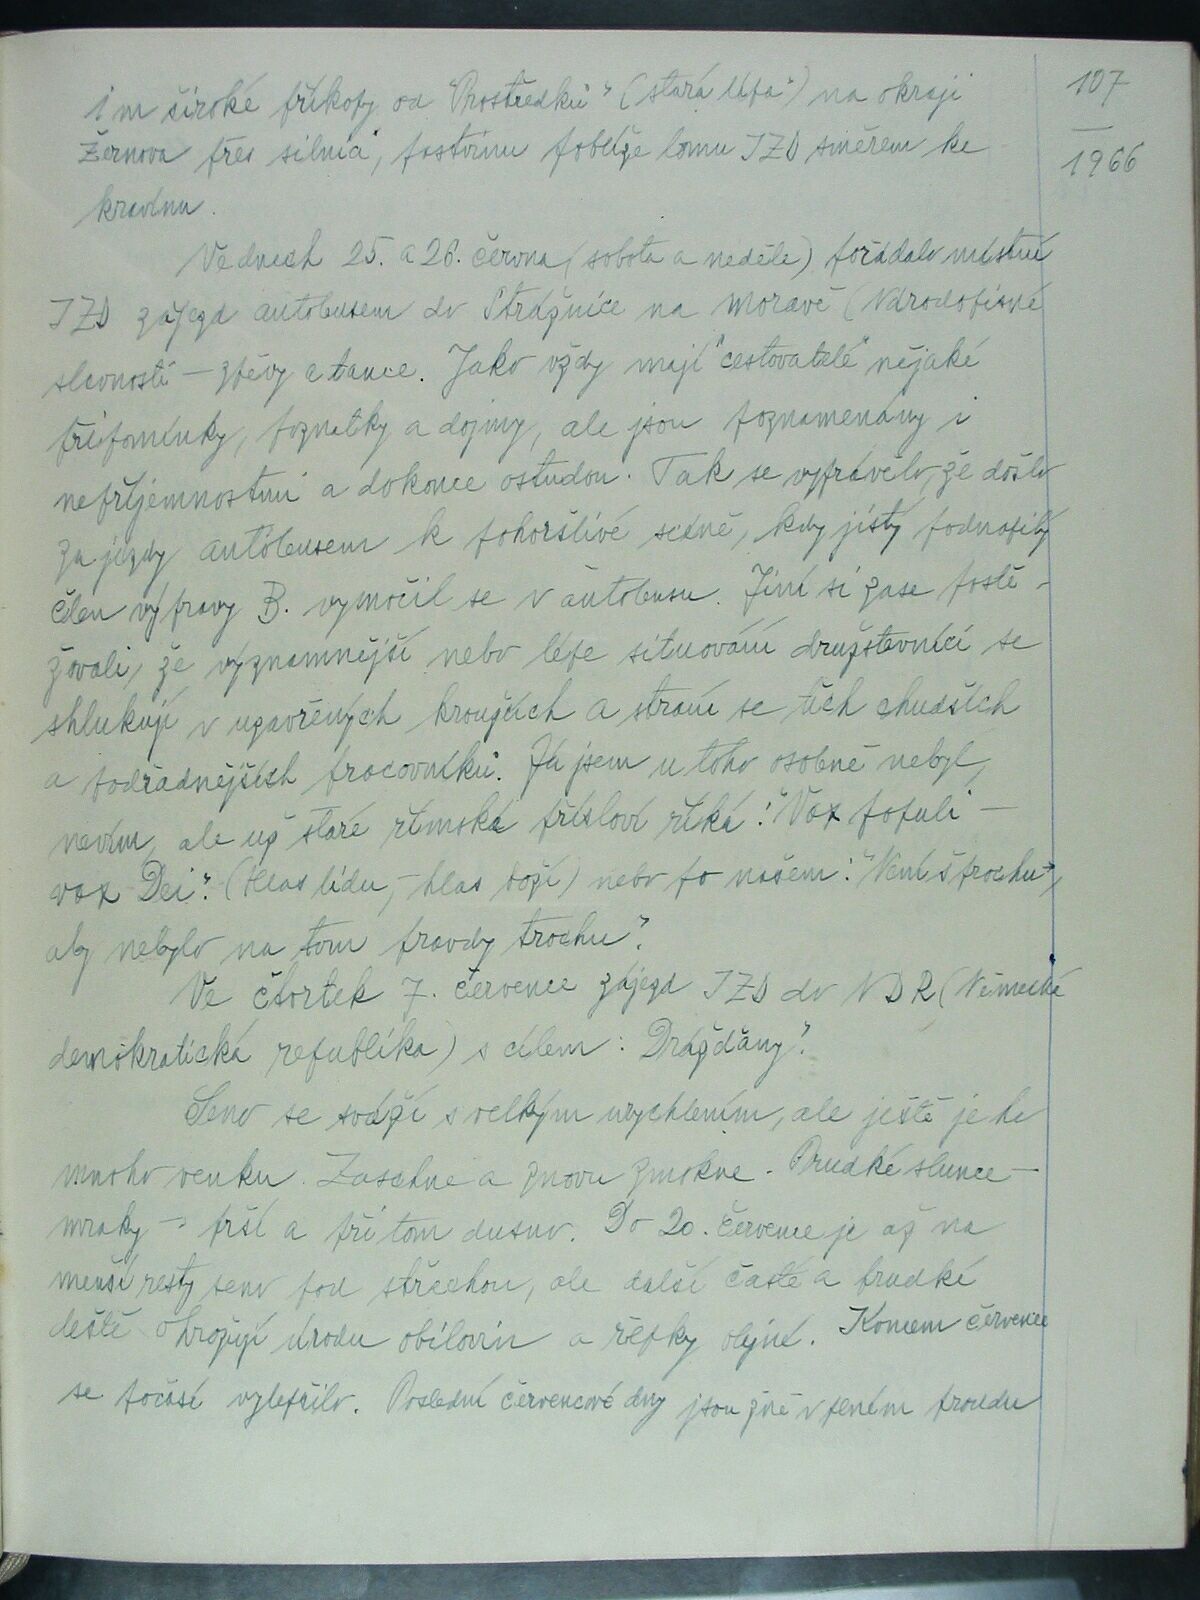 107
1966
1 m široké příkopy od "Prostředků" (stará lípa") na okraji
Žernova přes silnici, pastvinu poblíže lomu JZD směrem ke
kravínu.
Ve dnech 25. a 26. června (sobota a neděle) pořádalo místní
JZD zájezd autobusem do Strážnice na Moravě (Národopisné
slavnosti – zpěvy a tance. Jako vždy mají "cestovatelé" nějaké
připomínky, poznatky a dojmy, ale jsou poznamenány i
nepříjemnostmi a dokonce ostudou. Tak se vyprávělo, že došlo
za jízdy autobusem k pohoršlivé scéně, kdy jistý podnapilý
člen výpravy B. vymočil se v autobusu. Jiní si zase postě-
žovali, že významnější nebo lépe situováni družstevníci se
shlukují v uzavřených kroužcích a straní se těch chudších
a podřadnějších pracovníků. Já jsem u toho osobně nebyl,
nevím, ale už staré římské přísloví říká: "Vox populi –
vox Dei". (Hlas lidu, – hlas boží) nebo po našem: "Není šprochu,
aby nebylo na tom pravdy trochu".
Ve čtvrtek 7. července zájezd JZD do NDR (Německá
demokratická republika) s cílem: Drážďany".
Seno se sváží s velkým urychlením, ale ještě je ho
mnoho venku. Zaschne a znovu zmokne. Prudké slunce –
mraky – prší a při tom dusno. Do 20. července je až na
menší resty seno pod střechou, ale další časté a prudké
deště ohrožují úrodu obilovin a řepky olejné. Koncem července
se počasí vylepšilo. Poslední červencové dny jsou žně v plném proudu